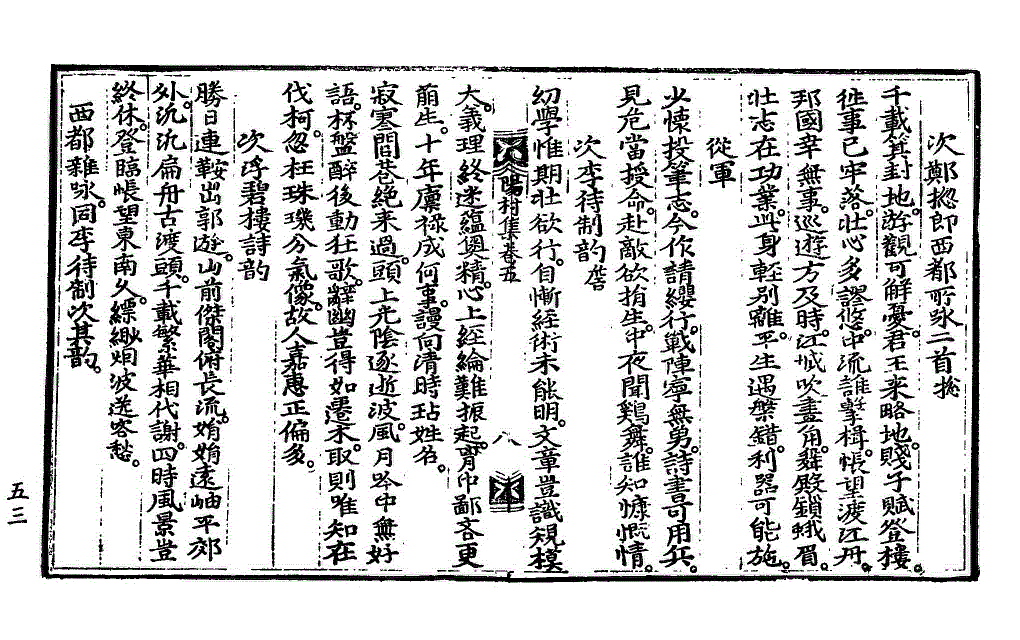 次鄭摠郎西都所咏二首摠
千載箕封地。游觀可解憂。君王来略地。賤子賦登樓。
徃事已牢落。壯心多謬悠。中流誰擊楫。悵望渡江舟。
邦國幸無事。巡遊方及時。江城吹畫角。舞殿鎖蛾眉。
壯志在功業。此身輕别離。平生遇槃錯。利器可能施。
從軍
少懐投筆志。今作請纓行。戰陣寧無勇。詩書可用兵。
見危當授命。赴敵欲捐生。中夜聞鷄舞。誰知慷慨情。
次李待制韵
幼學惟期壮欲行。自慚經術未能明。文章豈識規模
大。義理終迷蘊奥精。心上經綸難振起。胷中鄙吝更
萠生。十年廪禄成何事。謾向清時玷姓名。
寂寞閭巷絶来過。頭上光陰逐逝波。風月吟中無好
語。杯盤醉後動狂歌。辭幽豈得如遷木。取則唯知在
伐柯。忽枉珠璣分氣像。故人嘉惠正偏多。
次浮碧樓詩韵
勝日連鞍出郭遊。山前傑閣俯長流。娟娟遠岫平郊
外。泛泛扁舟古渡頭。千載繁華相代謝。四時風景豈
終休。登臨悵望東南久。縹緲烟波送客愁。
西都雜咏。同李待制次其韵。
陽村集卷五
八
五三